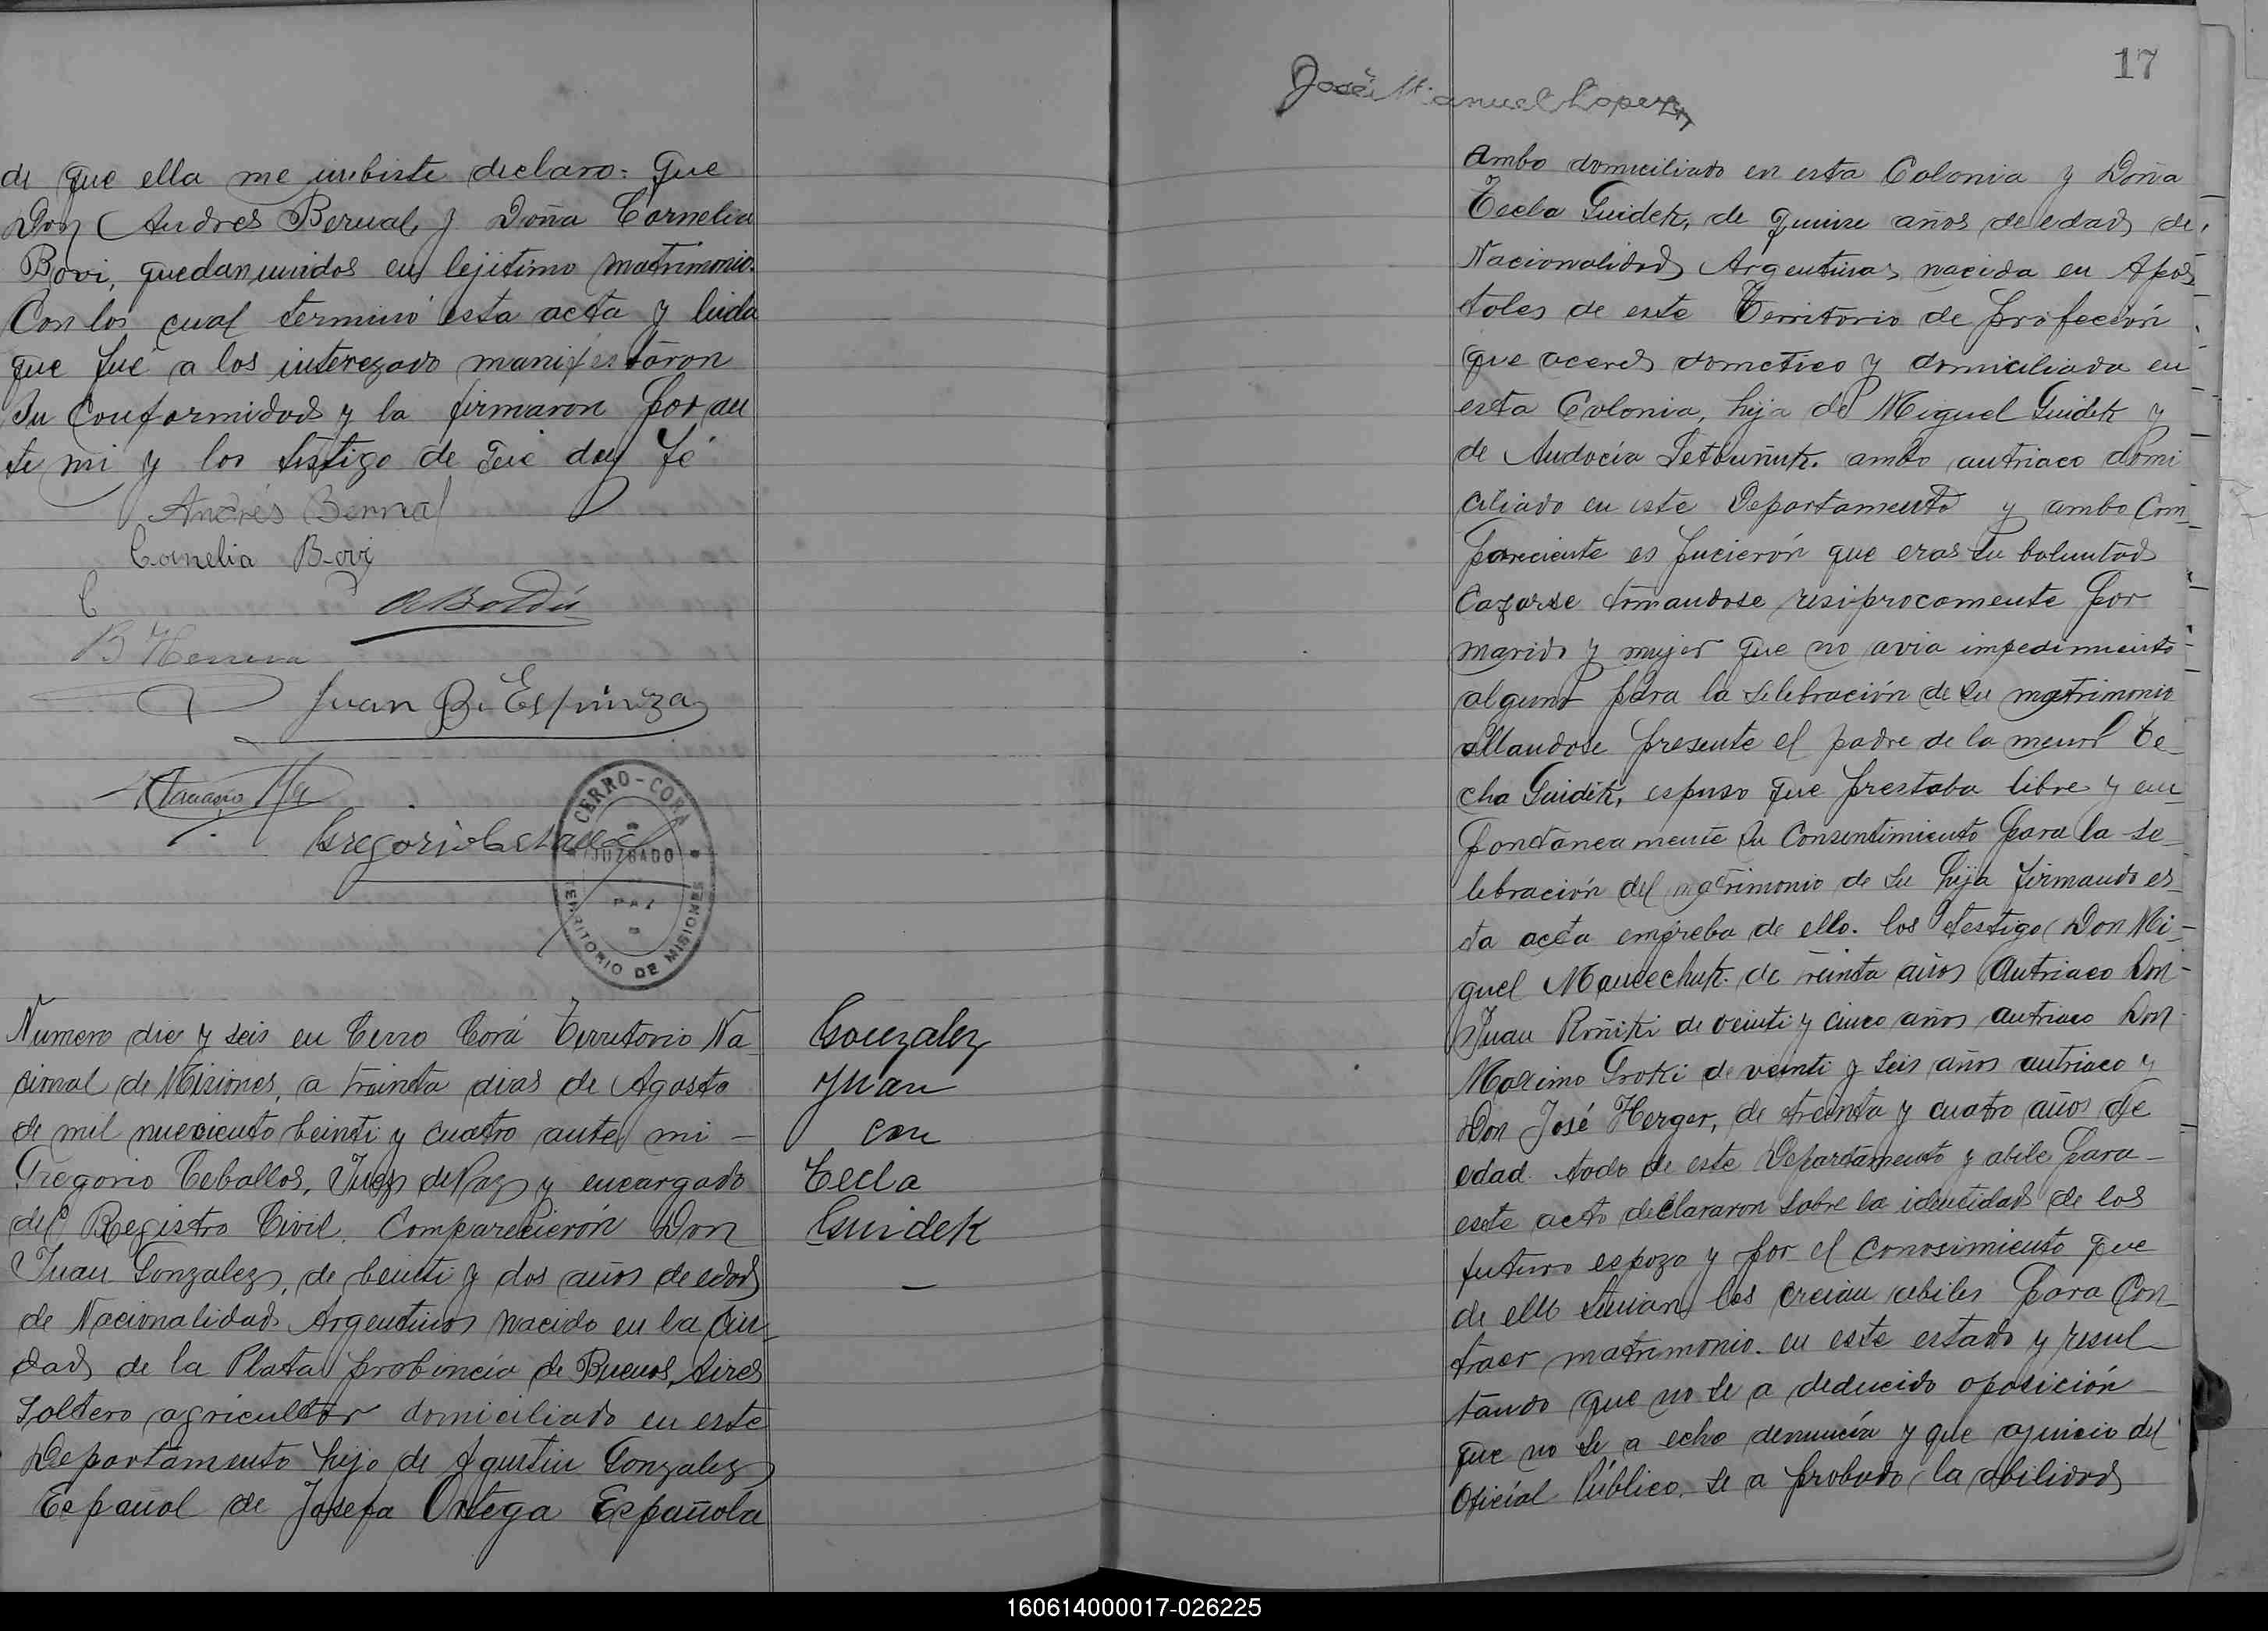 de que ella me inbiste declaro: que
Don Andres Bernal y Doña Cornelia
Bovi, quedan unidos en lejitimo matrimonio.
Con los cual terminó esta acta y leida
que fué a los interezado manifestaron
Su Conformidad y la firmaron por an
te mi y los testigo de que doy fé
Andrés Bernal
Cornelia Bovi
B Herrera
Juan B. Espinoza
Gregorio Ceballos
CERRO-CORA
JUZGADO
PAZ
TERRITORIO DE MISIONES
Numero die y seis en Cerro Corá Territorio Na
cional de Misiones, a trainta dias de Agosto
de mil nuevciento beinti y cuatro ante mi -
Gregorio Ceballos, Juez de Paz y encargado
del Registro Civil. Comparecierón Don
Juan Gonzalez, de beinti y dos años de edad
de Nacionalidad Argentino nacido en la Ciu
dad de la Plata probincia de Buenos Aires
Soltero agricultor domiciliado en este
Departamento hijo de Agustin Gonzalez
Español de Josefa Ortega Española
Gonzalez
Juan
con
Tecla
Guidek
-
17
José Manuel Lopez
Ambo domiciliado en esta Colonia y Doña
Tecla Guidek, de quinse años de edad de
Nacionalidad Argentina nacida en Apos
toles de este Territorio de profeción
que aceres dometico y domiciliada en
esta Colonia, hija de Miguel Guidek y
de Audocia ambo autriaco domi
ciliado en este Departamento y ambo Com_
pareciente es pucierón que eras su boluntad
Cazarse tomandose resiprocamente por
marido y mujer que no avia impedimiento
alguno para la selebración de su matrimonio
allandose presente el padre de la menor Te_
cha Guidek, espuso que prestaba libre y eus_
pontáneamente su Consentimiento para la se_
lebración del matrimonio de su hija firmando es_
ta acta empreba de ello. los testigo Don Mi-
guel de treinta años Autriaco Don
Juan de veinti y cinco años autriaco Don
Maximo de veinti y seis años autriaco y
Don José Herger, de treinta y cuatro años de
edad. todo de este Departamento y abile para -
este acto declararon sobre la identidad de los
futuro espozo y por el conosimiento que
de ello tenian los creian abiles para Con_
traer matrimonio. en este estado y resul_
tando que no se a deducido oposición
que no se a echo denuncia y que ajuicio del
Oficial Público, se a probado la abilidad